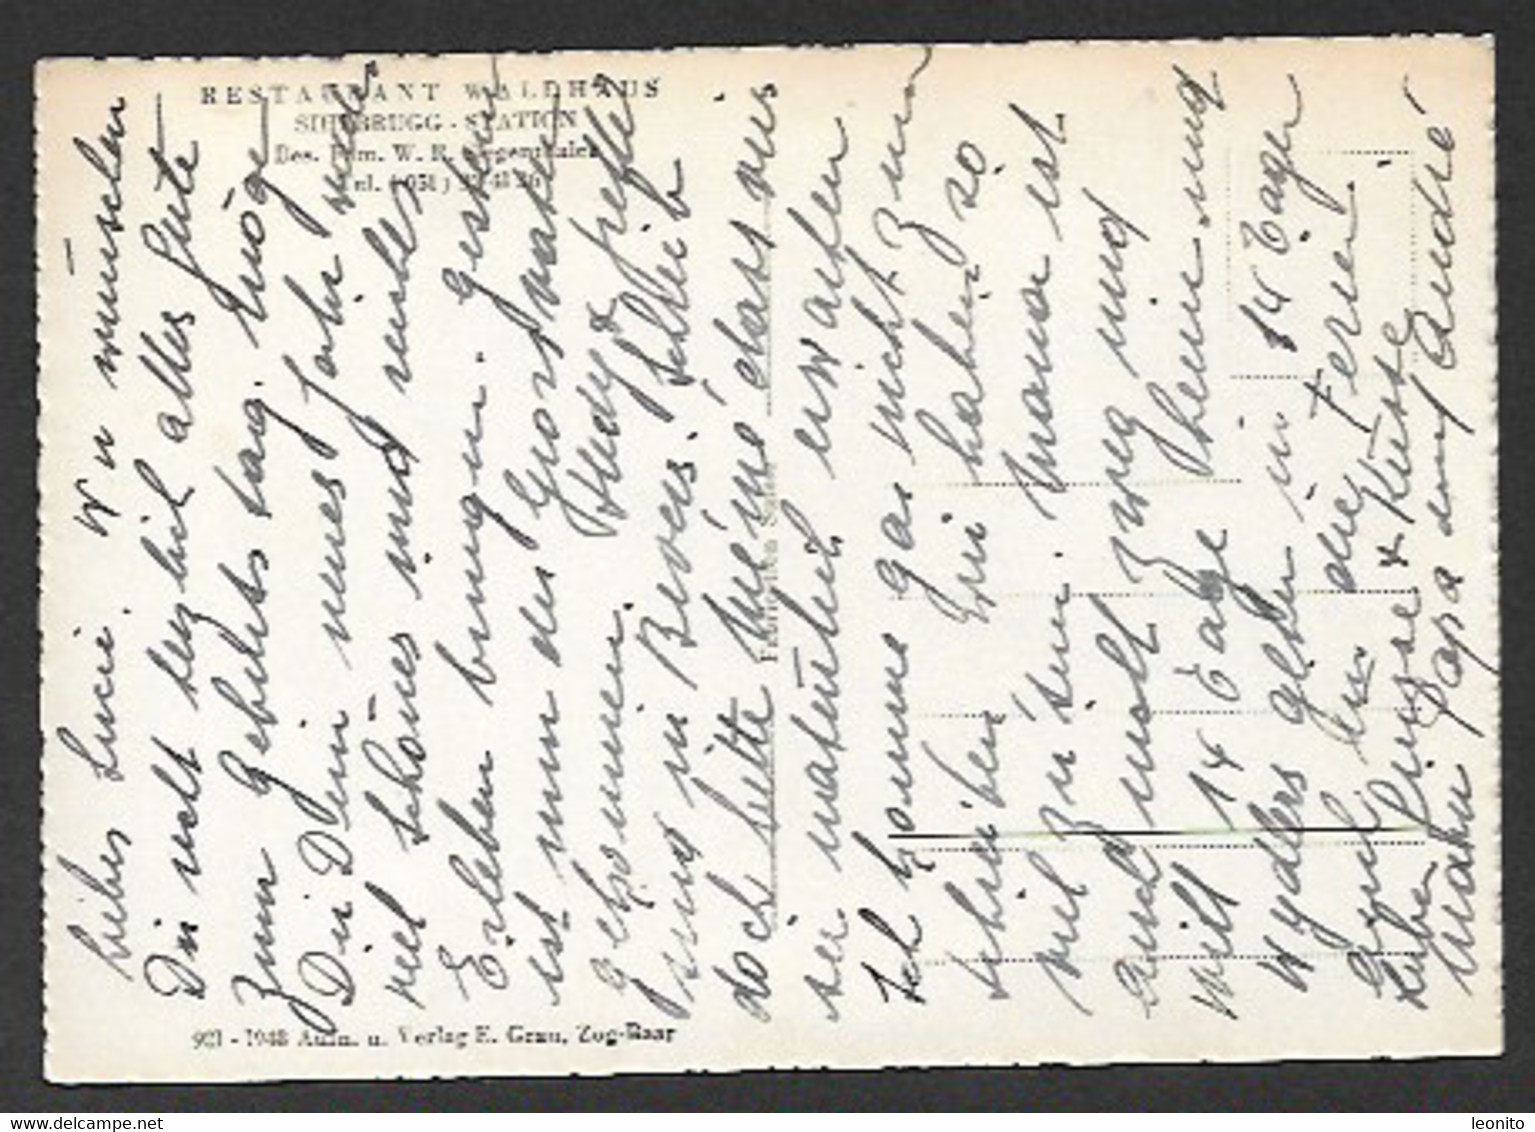 RESTAURANT WALDHAUS
SIHLBRUGG - STATION
Bes. Fam. W. R.
Tel. (051)
Liebes Luci. Wir wünschen
Dir recht herzlich alles Gute
zum Geburtstag. Möge
Dir Dein neues Jahr recht
viel schönes und
Erleben bringen. Gestern
ist nun der Grossvater
gekommen. Hedy &
sind in Bevers. Schreib
doch bitte Mémé dass wir
sie natürlich erwarten
Ich komme gar nicht zum
schreiben. Wir haben so
viel zu tun. Mama ist
auch nicht zweg und
will 14 Tage heim und
Wydlers gehen in 14 Tagen
auch in die Ferien.
Liebe Grüsse & Küsse
Mami Papa und André
921 - 1948 Aufn. u. Verlag E. Grau, Zug-Baar
leonito